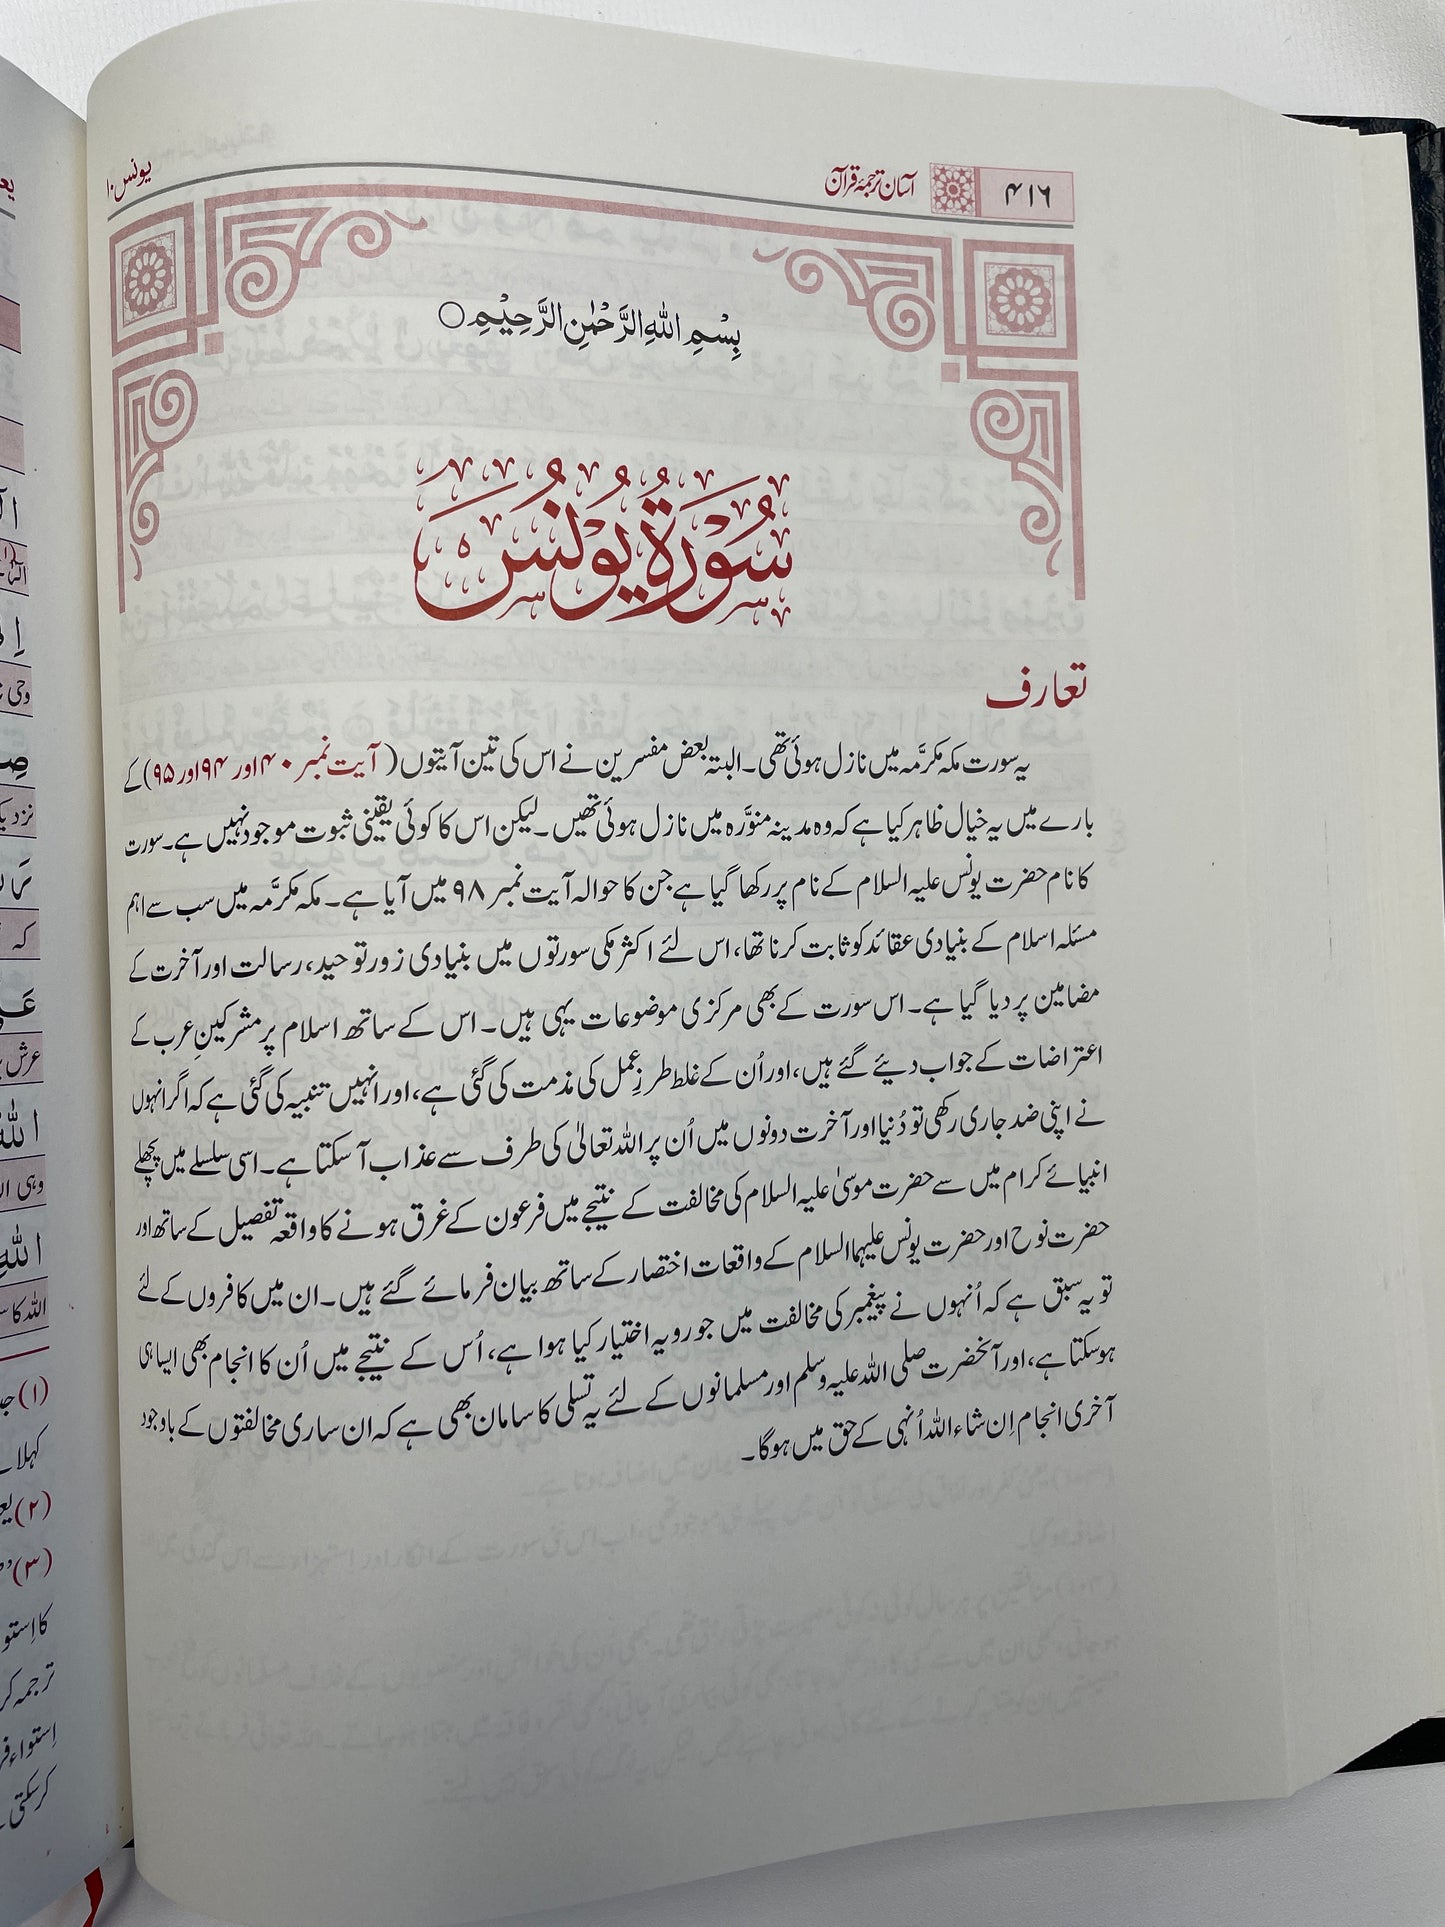 ۴۱۶ آسان ترجمۂ قرآن یونس ۱۰
بِسْمِ اللهِ الرَّحْمٰنِ الرَّحِيْمِ ○
سُوْرَةُ يُوْنُسَ
تعارف
یہ سورت مکہ مکرّمہ میں نازل ہوئی تھی۔ البتہ بعض مفسرین نے اس کی تین آیتوں (آیت نمبر ۴۰ اور ۹۴ اور ۹۵) کے
بارے میں یہ خیال ظاہر کیا ہے کہ وہ مدینہ منوّرہ میں نازل ہوئی تھیں۔ لیکن اس کا کوئی یقینی ثبوت موجود نہیں ہے۔ سورت
کا نام حضرت یونس علیہ السلام کے نام پر رکھا گیا ہے جن کا حوالہ آیت نمبر ۹۸ میں آیا ہے۔ مکہ مکرّمہ میں سب سے اہم
مسئلہ اسلام کے بنیادی عقائد کو ثابت کرنا تھا، اس لئے اکثر مکی سورتوں میں بنیادی زور توحید، رسالت اور آخرت کے
مضامین پر دیا گیا ہے۔ اس سورت کے بھی مرکزی موضوعات یہی ہیں۔ اس کے ساتھ اسلام پر مشرکینِ عرب کے
اعتراضات کے جواب دیئے گئے ہیں، اور اُن کے غلط طرزِ عمل کی مذمت کی گئی ہے، اور انہیں تنبیہ کی گئی ہے کہ اگر انہوں
نے اپنی ضد جاری رکھی تو دُنیا اور آخرت دونوں میں اُن پر اللہ تعالیٰ کی طرف سے عذاب آ سکتا ہے۔ اسی سلسلے میں پچھلے
انبیائے کرام میں سے حضرت موسیٰ علیہ السلام کی مخالفت کے نتیجے میں فرعون کے غرق ہونے کا واقعہ تفصیل کے ساتھ اور
حضرت نوح اور حضرت یونس علیہما السلام کے واقعات اختصار کے ساتھ بیان فرمائے گئے ہیں۔ ان میں کافروں کے لئے
تو یہ سبق ہے کہ اُنہوں نے پیغمبر کی مخالفت میں جو رویہ اختیار کیا ہوا ہے، اُس کے نتیجے میں اُن کا انجام بھی ایسا ہی
ہوسکتا ہے، اور آنحضرت صلی اللہ علیہ وسلم اور مسلمانوں کے لئے یہ تسلی کا سامان بھی ہے کہ ان ساری مخالفتوں کے باوجود
آخری انجام اِن شاء اللہ اُنہی کے حق میں ہوگا۔
وحی
عرش
اللہ
وہی
اللہ
اللہ کا
(۱)
(۲)
(۳)